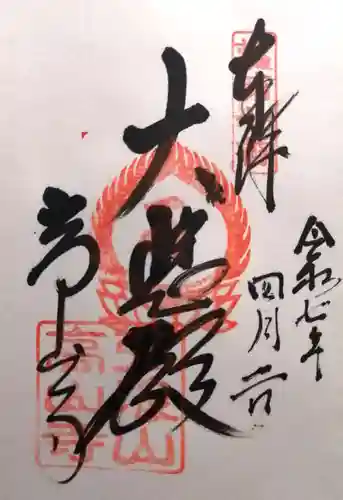 奉拝
令和七年
四月二日
大悲殿
高山寺